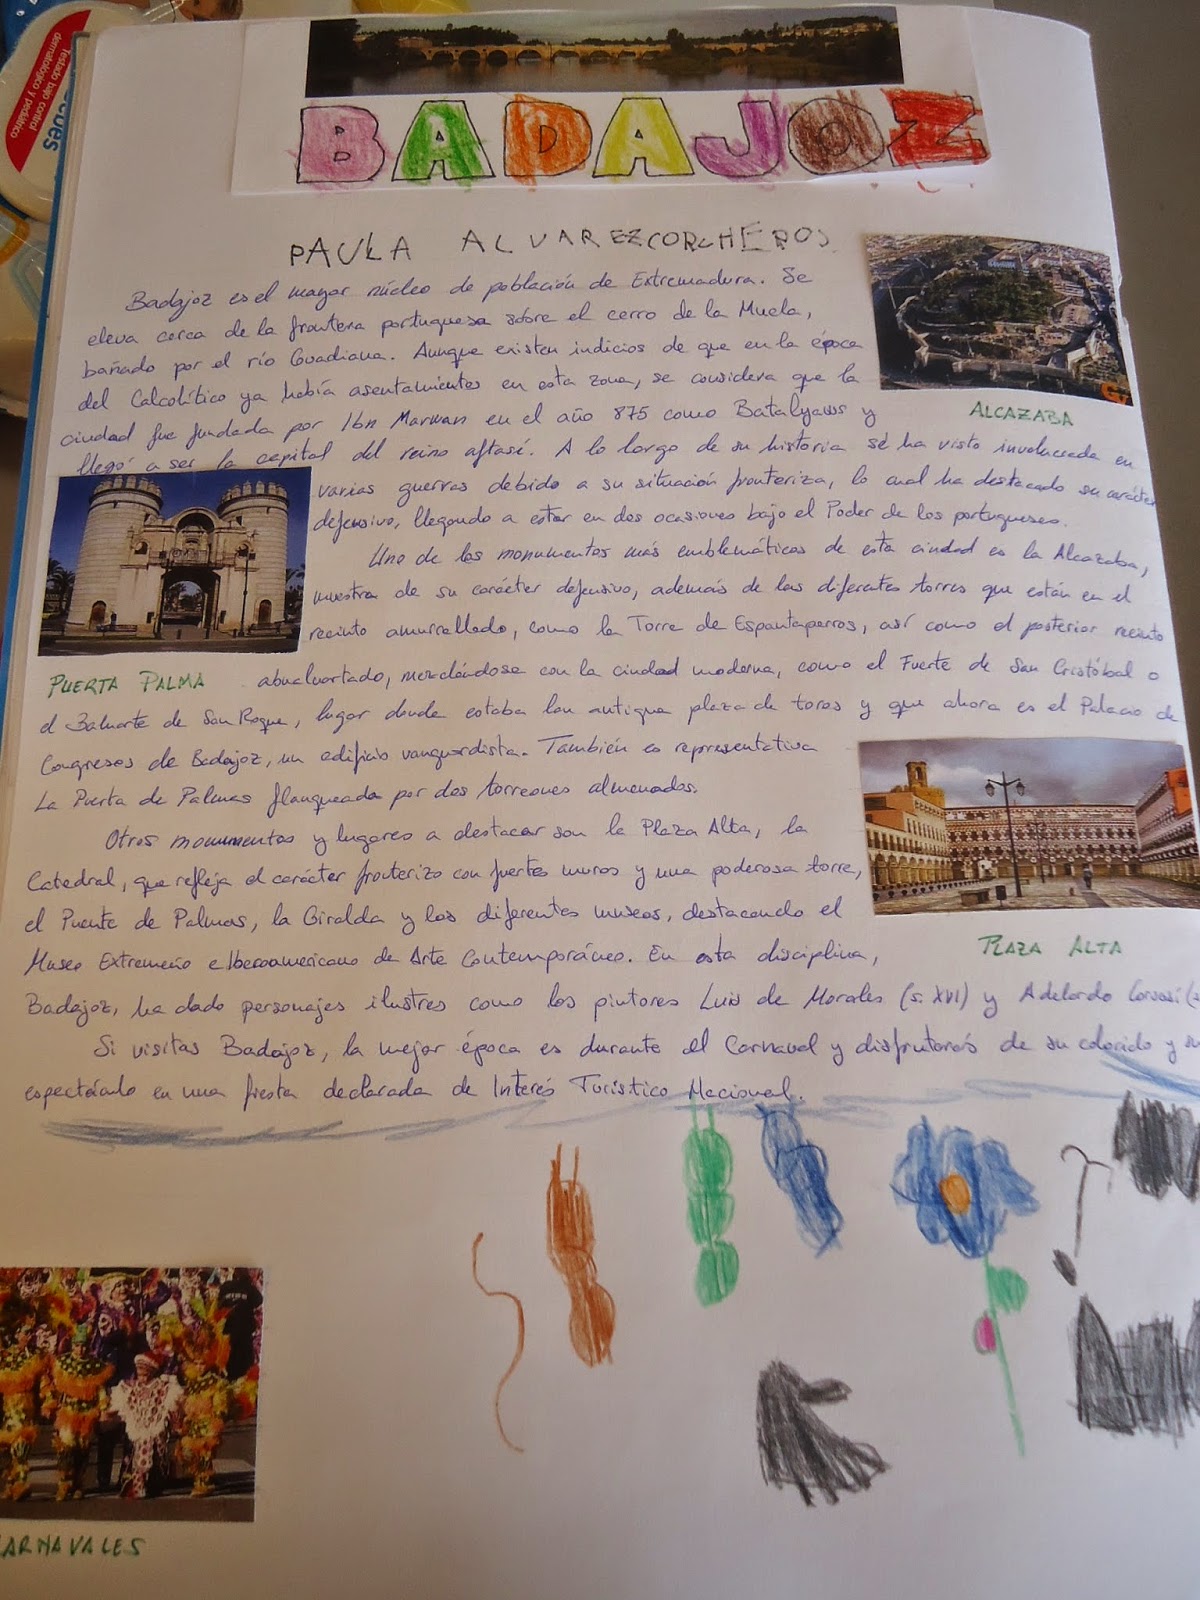 Testado bajo control
dermatológico y pediátrico
BADAJOZ
PAULA ALVAREZCORCHEROS
Badajoz es el mayor núcleo de población de Extremadura. Se
eleva cerca de la frontera portuguesa sobre el cerro de la Muela,
bañado por el río Guadiana. Aunque existen indicios de que en la época
del Calcolítico ya había asentamientos en esta zona, se considera que la
ciudad fue fundada por Ibn Marwan en el año 875 como Batalyaws y
ALCAZABA
llegó a ser la capital del reino aftasí. A lo largo de su historia se ha visto involucrada en
varias guerras debido a su situación fronteriza, lo cual ha destacado su carácter
defensivo, llegando a estar en dos ocasiones bajo el Poder de los portugueses.
Uno de los monumentos más emblemáticos de esta ciudad es la Alcazaba,
muestra de su carácter defensivo, además de las diferentes torres que están en el
recinto amurallado, como la Torre de Espantaperros, así como el posterior recinto
PUERTA PALMA
abaluartado, mezclándose con la ciudad moderna, como el Fuerte de San Cristóbal o
el Baluarte de San Roque, lugar donde estaba la antigua plaza de toros y que ahora es el Palacio de
Congresos de Badajoz, un edificio vanguardista. También es representativa
La Puerta de Palmas flanqueada por dos torreones almenados.
Otros monumentos y lugares a destacar son la Plaza Alta, la
Catedral, que refleja el carácter fronterizo con fuertes muros y una poderosa torre,
el Puente de Palmas, la Giralda y los diferentes museos, destacando el
Museo Extremeño e Iberoamericano de Arte Contemporáneo. En esta disciplina,
PLAZA ALTA
Badajoz, ha dado personajes ilustres como los pintores Luis de Morales (s. XVI) y Adelardo Covarsí (s
Si visitas Badajoz, la mejor época es durante el Carnaval y disfrutarás de su colorido y su
espectáculo en una fiesta declarada de Interés Turístico Nacional.
ARNAVALES